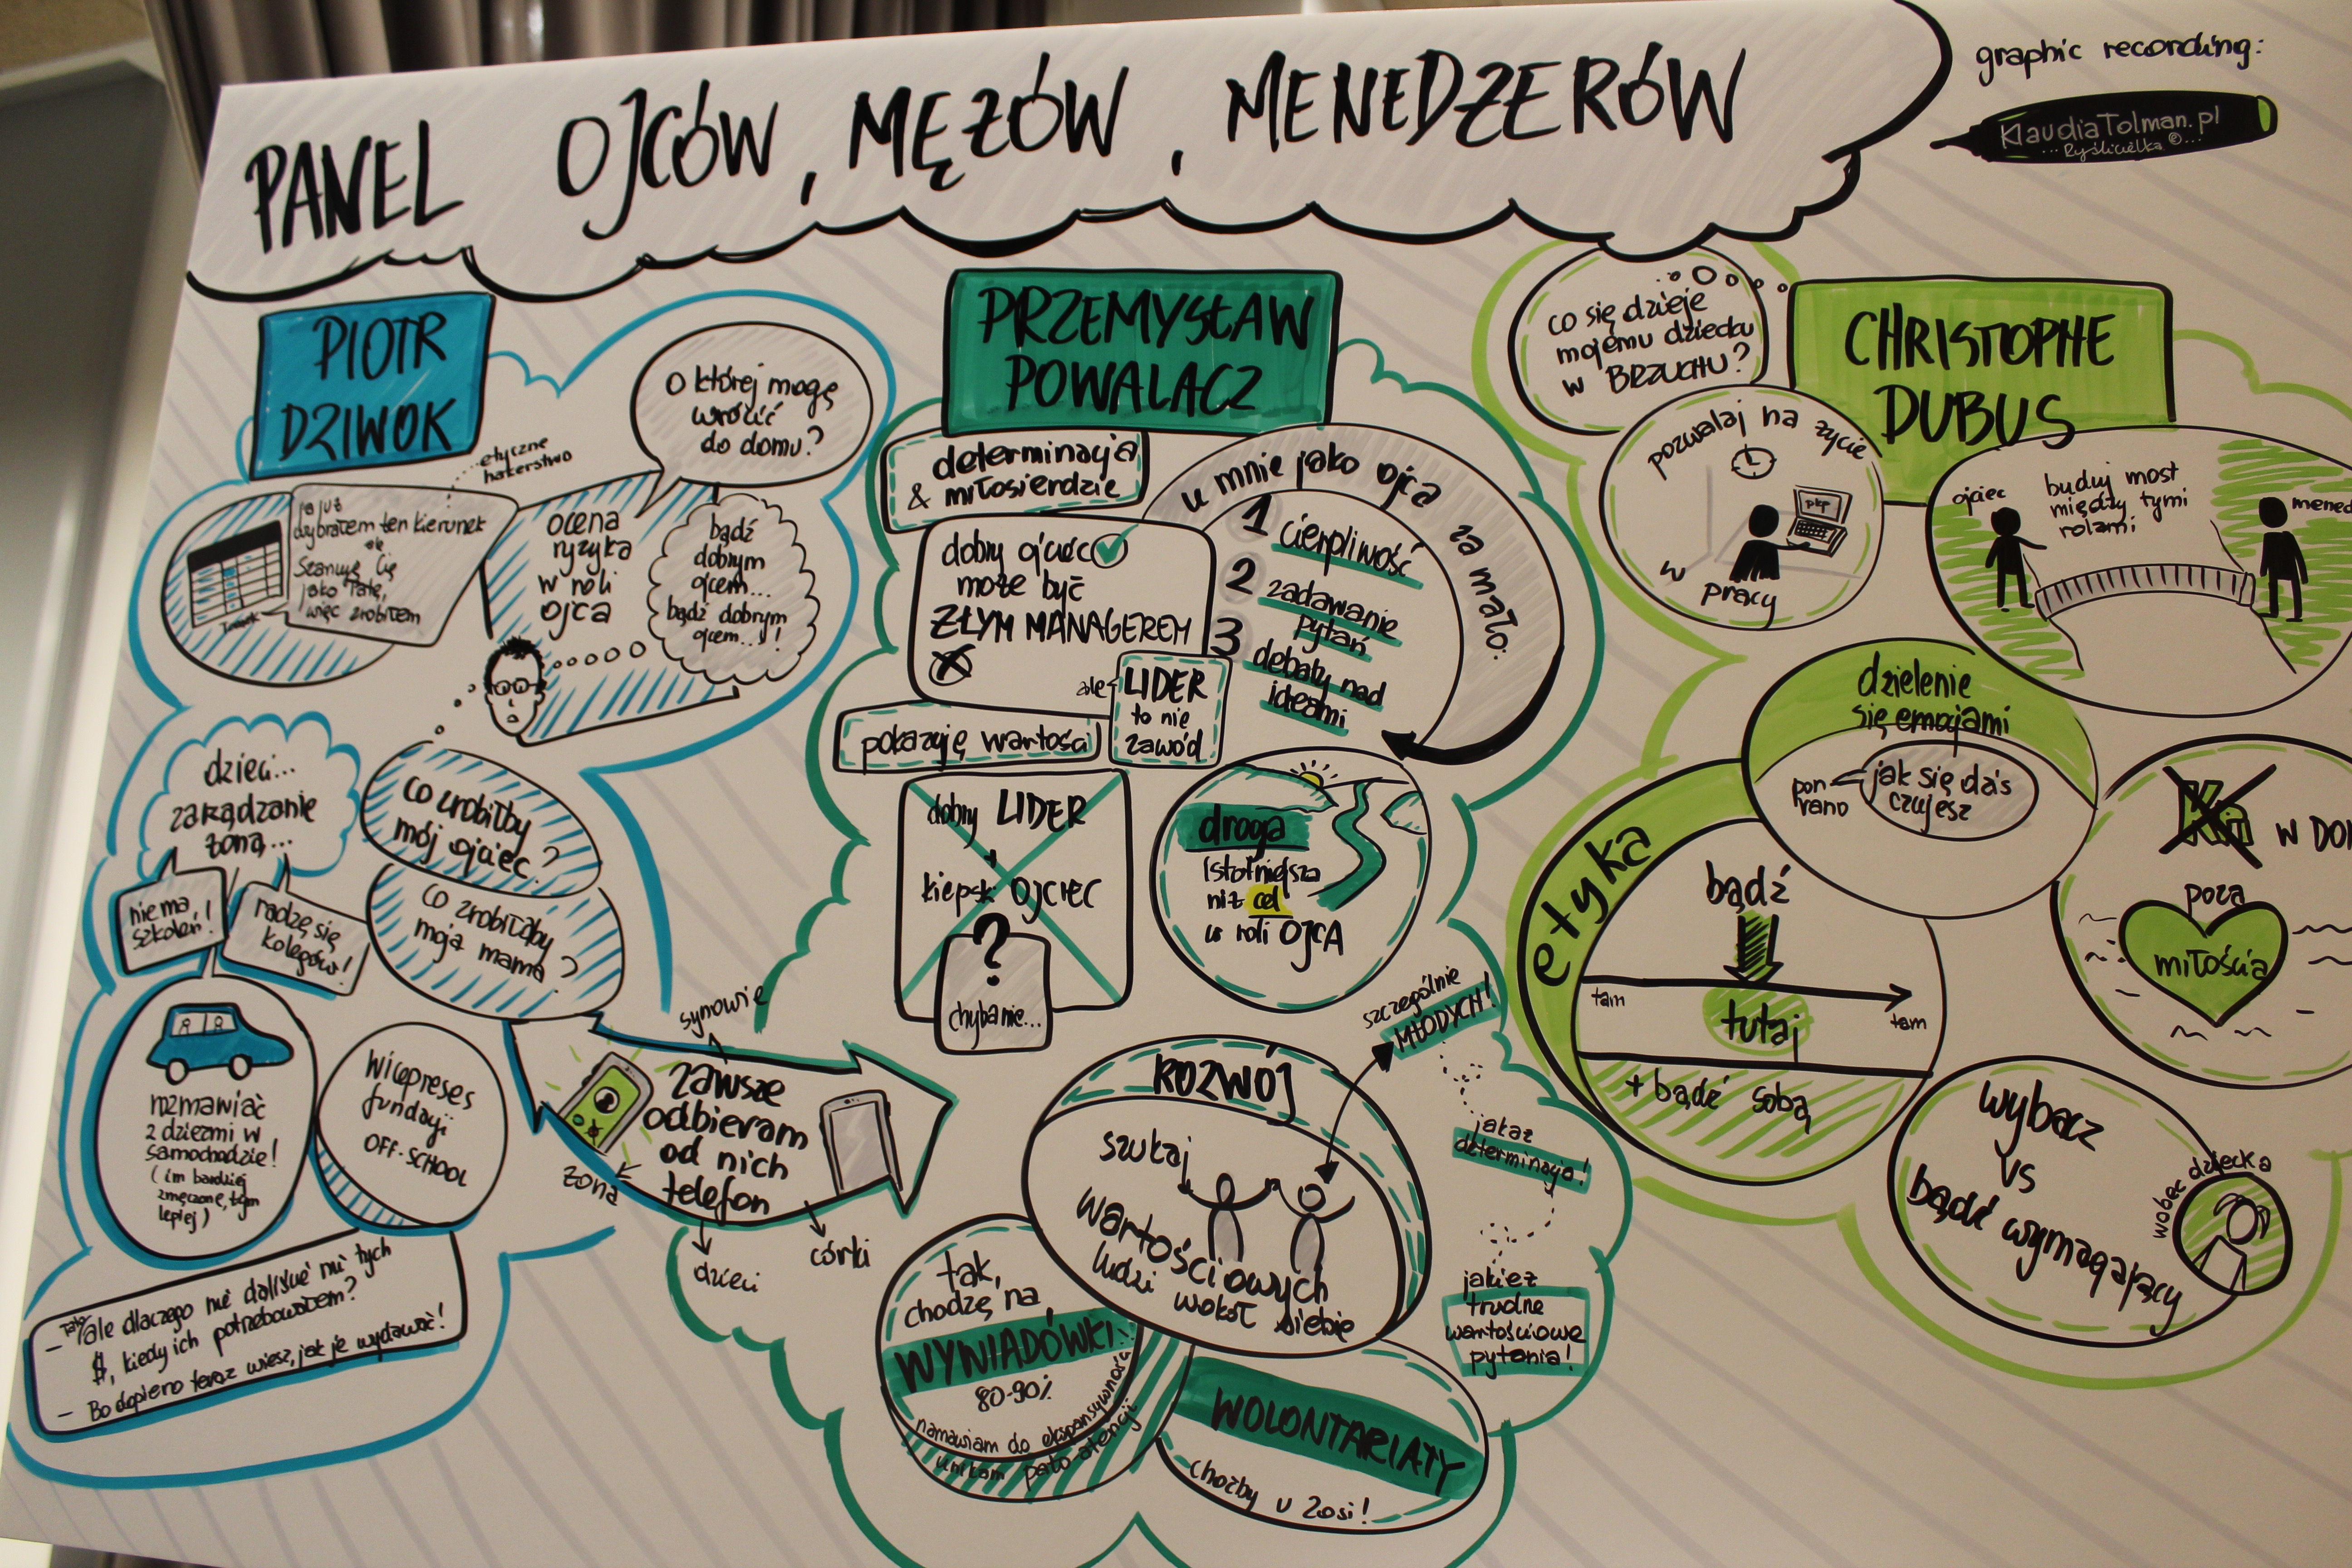 PANEL OJCÓW, MĘŻÓW, MENEDŻERÓW
graphic recording:
KlaudiaTolman.pl
...Ryślicielka ©...
PIOTR
DZIWOK
...etyczne
hakerstwo
O której mogę
wrócić
do domu?
ja już
wybrałem ten kierunek
ale
Szanuję Cię
jako Tatę,
więc zrobiłem
ocena
ryzyka
w roli
ojca
bądź
dobrym
ojcem...
bądź dobrym
ojcem...!
dzieci...
zarządzanie
żoną...
nie ma
szkoleń!
radzę się
kolegów!
co zrobiłby
mój ojciec?
co zrobiłaby
moja mama?
rozmawiać
z dziećmi w
samochodzie!
(im bardziej
zmęczone, tym
lepiej)
Wiceprezes
fundacji
OFF-SCHOOL
— Tato, ale dlaczego nie daliście mi tych
$, kiedy ich potrzebowałem?
— Bo dopiero teraz wiesz, jak je wydawać!
synowie
zawsze
odbieram
od nich
telefon
żona
dzieci
córki
PRZEMYSŁAW
POWAŁACZ
determinacja
& miłosierdzie
dobry ojciec
może być
ZŁYM MANAGEREM
ale
LIDER
to nie
zawód
pokazuję wartości
u mnie jako ojca za mało:
1 cierpliwość
2 zadawanie
pytań
3 debaty nad
ideami
dobry LIDER
+
kiepski OJCIEC
?
chyba nie...
droga
istotniejsza
niż cel
w roli OJCA
ROZWÓJ
szukaj
wartościowych
ludzi wokół siebie
szczególnie
MŁODYCH!
jakaż
determinacja!
jakież
trudne
wartościowe
pytania!
tak,
chodzę na
WYWIADÓWKI!
80-90%
namawiam do ekspansywności
unikam
WOLONTARIATY
choćby u Zosi!
CHRISTOPHE
DUBUS
co się dzieje
mojemu dziecku
w BRZUCHU?
pozwalaj na życie
pkp
w pracy
ojciec
buduj most
między tymi
rolami
mened
dzielenie
się emocjami
pon
rano
jak się dziś
czujesz
etyka
bądź
tam
tutaj
tam
+ bądź sobą
w DOM
poza
miłością
wybacz
vs
bądź wymagający
wobec dziecka